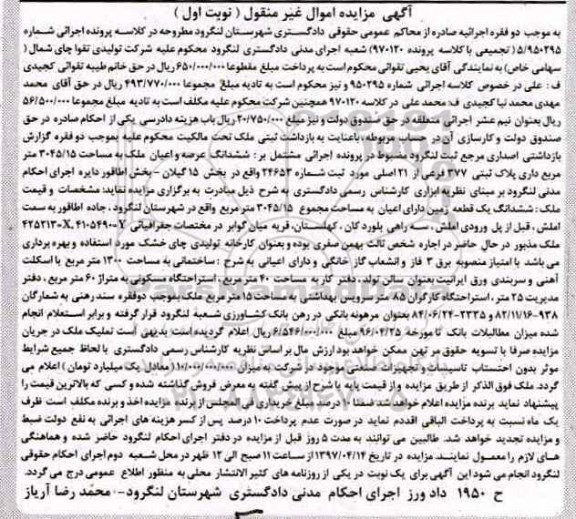 آگهی مزایده اموال غیر منقول ( نوبت اول )
به موجب دو فقره اجرائیه صادره از محاکم عمومی حقوقی دادگستری شهرستان لنگرود مطروحه در کلاسه پرونده اجرائی شماره
۵/۹۵۰۲۹۵ ( تجمیعی با کلاسه پرونده ۹۷۰۱۲۰) شعبه اجرای مدنی دادگستری لنگرود محکوم علیه شرکت تولیدی تقوا چای شمال (
سهامی خاص) به نمایندگی آقای یحیی تقوائی محکوم است به پرداخت مبلغ مقطوعا ۶۵۰/۰۰۰/۰۰۰ ریال در حق خانم طیبه تقوائی کجیدی
ف : علی در خصوص کلاسه اجرائی شماره ۹۵۰۲۹۵ و نیز محکوم است به تادیه مبلغ مجموعا ۴۹۳/۷۷۰/۰۰۰ ریال در حق آقای محمد
مهدی محمد نیا کجیدی ف: محمد علی در کلاسه ۹۷۰۱۲۰ همچنین شرکت محکوم علیه مکلف است به تادیه مبلغ مجموعا ۵۶/۵۰۰/۰۰۰
ریال بعنوان نیم عشر اجرائی متعلقه در حق صندوق دولت و نیز مبلغ ۲۰/۷۵۰/۰۰۰ ریال باب هزینه دادرسی یکی از احکام صادره در حق
صندوق دولت و کارسازی آن در حساب مربوطه، باعنایت به بازداشت ثبتی ملک تحت مالکیت محکوم علیه بموجب دو فقره گزارش
بازداشتی اصداری مرجع ثبت لنگرود مضبوط در پرونده اجرائی مشتمل بر : ششدانگ عرصه و اعیان ملک به مساحت ۳۰۴۵/۱۵ متر
مربع داری پلاک ثبتی ۳۷۷ فرعی از ۲۱ اصلی مورد ثبت شماره ۲۴۶۵۳ واقع در بخش ۱۵ گیلان - بخش اطاقور دایره اجرای احکام
مدنی لنگرود بر مبنای نظریه ابرازی کارشناس رسمی دادگستری به شرح ذیل مبادرت به برگزاری مزایده نماید: مشخصات و قیمت
ملک : ششدانگ یک قطعه زمین دارای اعیان به مساحت مجموع ۳۰۴۵/۱۵ متر مربع واقع در شهرستان لنگرود ، جاده اطاقور به سمت
املش ، قبل از پل ورودی املش ، سه راهی بلورد کان ، کهلستان، قریه میان گوابر در مختصات جغرافیائی ۴۱۰۵۴۹۰-Y ،۴۲۵۲۱۳-X
ملک مذبور در حال حاضر در اجاره شخص ثالث بهمن صفری بوده و بعنوان کارخانه تولیدی چای خشک مورد استفاده و بهره برداری
می باشد با امتیاز منصوبه برق ۳ فاز و انشعاب گاز خانگی و دارای اعیانی به شرح : ساختمانی به مساحت ۱۳۰۰ متر مربع با اسکلت
آهنی و سربندی ورق ایرانیت بعنوان سالن تولد، دفتر کار به مساحت ۴۰ متر مربع ، استراحتگاه مسکونی به متراژ ۶۰ متر مربع ، دفتر
مدیریت ۲۵ متر ، استراحتگاه کارگران ۸۵ متر سرویس بهداشتی به مساحت ۱۵ متر مربع ملک بموجب دوفقره سند رهنی به شمارگان
۸۲/۱۱/۱۶-۹۳۸ و ۲۳۳۵-۸۴/۰۶/۲۴ بعنوان مرهونه بانکی در رهن بانک کشاورزی شعبه لنگرود قرار گرفته و برابر استعلام انجام
شده میزان مطالبات بانک تا مورخه ۹۶/۰۴/۲۵ مبلغ ۶/۵۴۶/۰۰۰/۰۰۰ ریال اعلام گردیده است؛ بدیهی است تملیک ملک در جریان
مزایده صرفا با تسویه حقوق مرتهن ممکن خواهد بود ارزش مال بر اساس نظریه کارشناس رسمی دادگستری با لحاظ جمیع شرایط
موثر بدون احتساب تاسیسات و تجهیزات صنعتی موجود در شرکت به میزان ۱۰/۰۰۰/۰۰۰/۰۰۰ (معادل یک میلیارد تومان ) اعلام می
گردد. ملک فوق الذکر از طریق مزایده و از قیمت پایه با شرح از پیش گفته به معرض فروش گذاشته شده و کسی که بالاترین قیمت را
پیشنهاد نماید برنده مزایده اعلام خواهد شد ضمنا ۱۰ درصد مبلغ خریداری فی المجلس از برنده مزایده اخذ و برنده مکلف است ظرف
یک ماه نسبت به پرداخت الباقی اقددم نماید در صورت عدم پرداخت ۱۰ درصد پس از کسر هزینه های اجرائی به نفع دولت ضبط
و مزایده تجدید خواهد شد. طالبین می توانند به مدت ۵ روز قبل از مزایده در دفتر اجرای احکام لنگرود حاضر شده و هماهنگی
های لازم را معمول نمایند. مزایده در تاریخ ۱۳۹۷/۰۴/۱۴ از ساعت ۱۱ صبح الی ۱۲ ظهر در محل شعبه دوم اجرای احکام حقوقی
لنگرود انجام می شود این آگهی برای یک نوبت در یکی از روزنامه های کثیر الانتشار محلی به منظور اطلاع عمومی درج می گردد.
ح ۱۹۵۰ داد ورز اجرای احکام مدنی دادگستری شهرستان لنگرود- محمد رضا آریاز